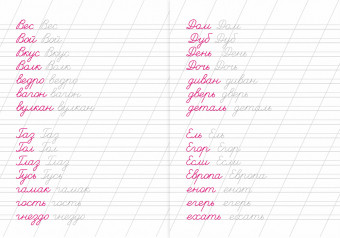 Вес Вес
Вой Вой
Вкус Вкус
Волк Волк
ведро ведро
вагон вагон
вулкан вулкан
Газ Газ
Гол Гол
Глаз Глаз
Гусь Гусь
гамак гамак
гость гость
гнездо гнездо
Дом Дом
Дуб Дуб
День День
Дочь Дочь
диван диван
дверь дверь
деталь деталь
Ель Ель
Егор Егор
Если Если
Европа Европа
енот енот
егерь егерь
ехать ехать